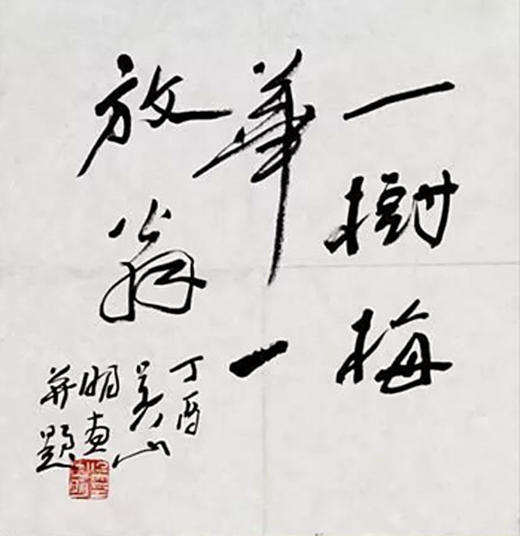 一樹梅
華一
放翁
丁酉
吴山
明画
并題